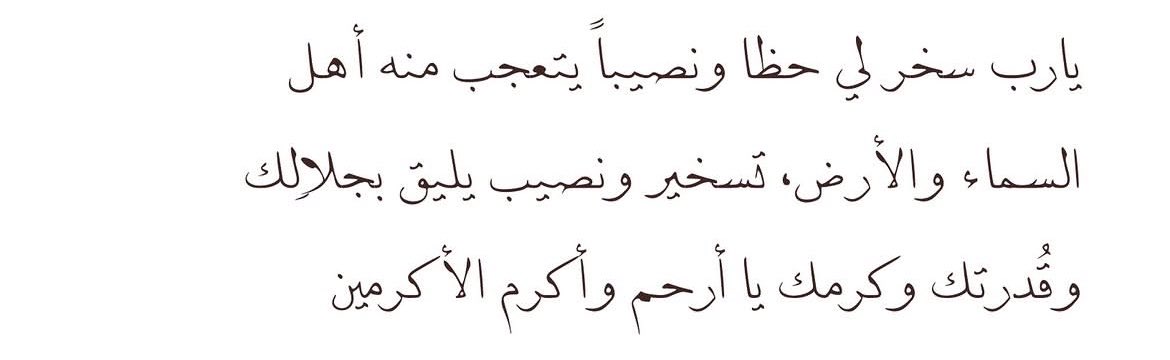 يارب سخر لي حظا ونصيباً يتعجب منه أهل
السماء والأرض، تسخير ونصيب يليق بجلالِك
وقُدرتك وكرمك يا أرحم وأكرم الأكرمين